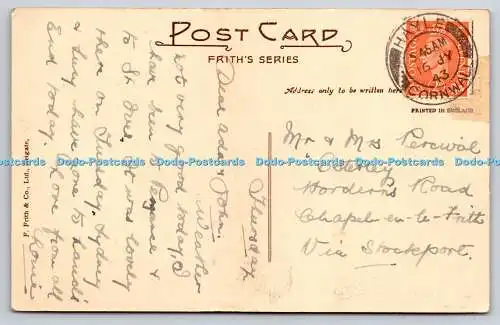 POST CARD
FRITH'S SERIES
Address only to be written here
PRINTED IN ENGLAND
HAYLE
CORNWALL
43
F. Frith & Co., Ltd., Reigate.
Thursday
Dear Ada & John.
Weather
not very good today, I
have been to Penzance &
to St Ives. It was lovely
there on Tuesday. Sydney
& Lucy have gone to Land's
End today. Love from all
Mr & Mrs Percival
Horderns Road
Chapel-en-le-Frith
Via Stockport.
Dodo-Postcards Dodo-Postcards Dodo-Postcards Dodo-Postcards Dodo-Postcards